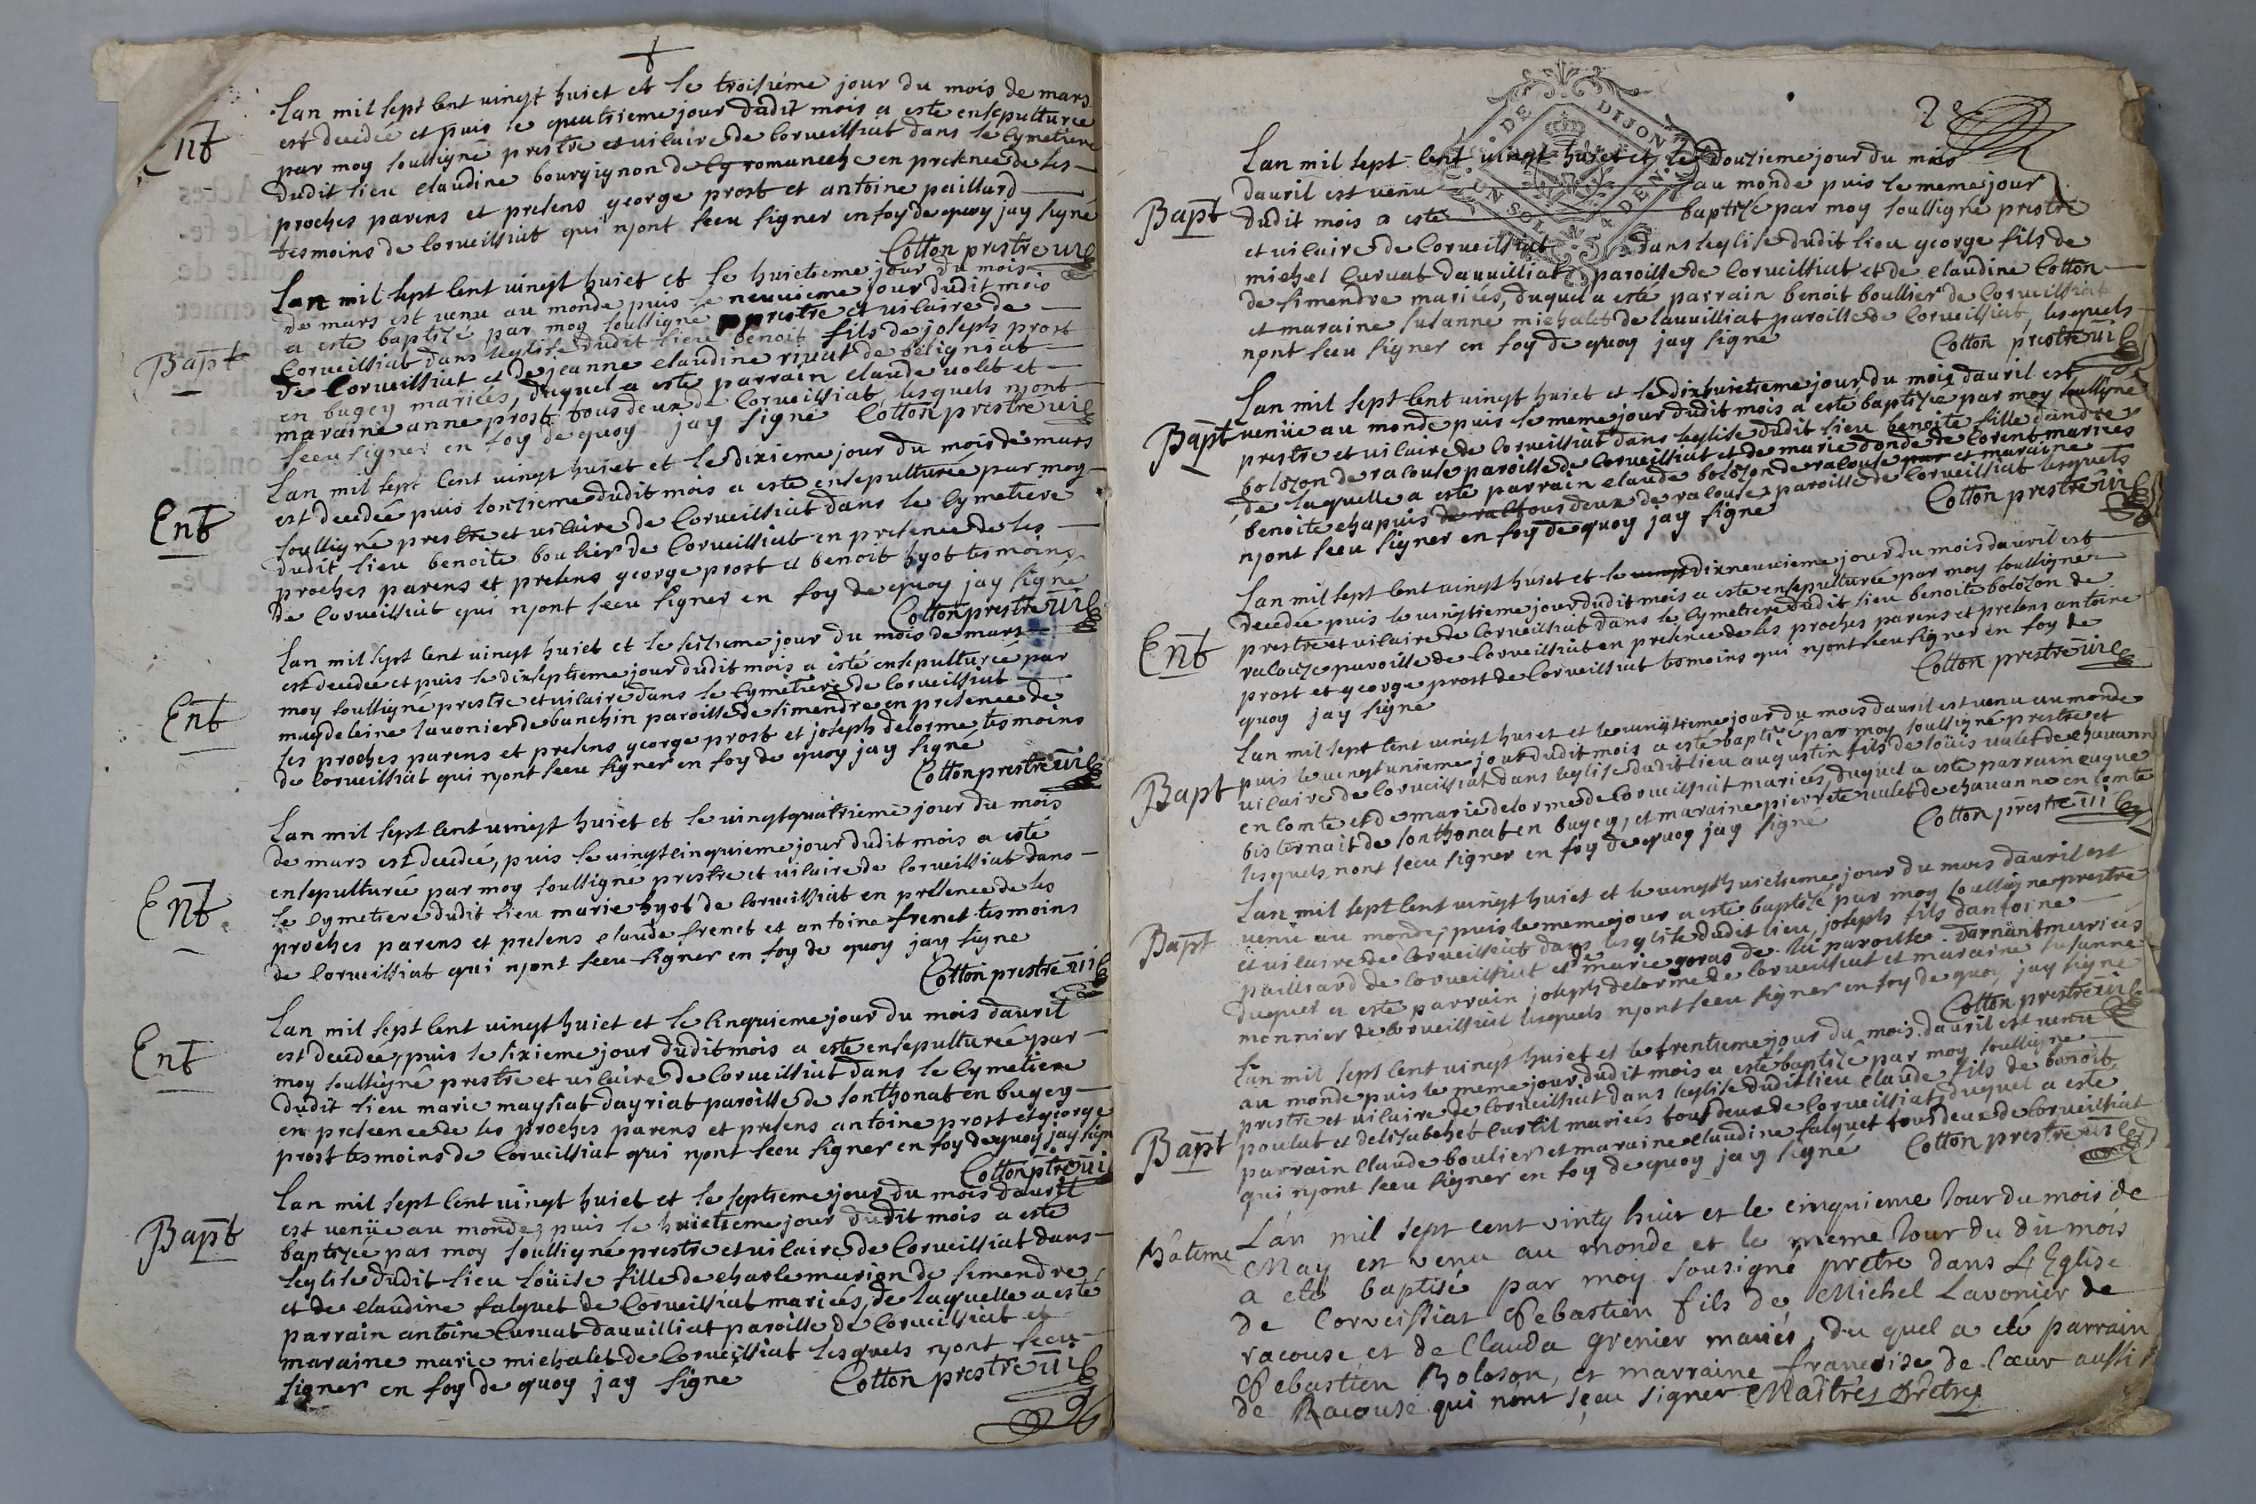 Ent
Lan mil sept cent vingt huict et le troisième jour du mois de mars
est decedée et puis le quatrieme jour dudit mois a este ensepulturée
par moy soussigné prestre et vicaire de Corveissiat dans le cymetiere
dudit lieu claudine bourgignon de la romaneche en presence de ses
proches parens et presens george prost et antoine paillard
tesmoins de Corveissiat qui n'ont sceu signer en foy de quoy jay signé
Cotton prestre vic
Bapt
Lan mil sept cent vingt huict et le huictieme jour du mois
de mars est venu au monde puis le neuvieme jour dudit mois
a este baptizé par moy soussigné prestre et vicaire de
Corveissiat dans leglise dudit lieu benoit fils de joseph prost
de Corveissiat et de jeanne claudine rivat de beligniat
en bugey mariés, duquel a este parrain claude volet et
maraine anne prost tous deux de Corveissiat, lesquels n'ont
sceu signer en foy de quoy jay signé Cotton prestre vic
Ent
Lan mil sept cent vingt huict et le dixieme jour du mois de mars
est decedée puis lonzieme dudit mois a este ensepulturée par moy
soussigné prestre et vicaire de Corveissiat dans le cymetiere
dudit lieu benoite boulier de Corveissiat en presence de ses
proches parens et presens george prost et benoit hyot tesmoins
de Corveissiat qui n'ont sceu signer en foy de quoy jay signé
Cotton prestre vic
Ent
Lan mil sept cent vingt huict et le seizieme jour du mois de mars
est decedée et puis le dixseptieme jour dudit mois a esté ensepulturée par
moy soussigné prestre et vicaire dans le cymetiere de Corveissiat
magdeleine lavonier de banchin paroisse de simendre en presence de
ses proches parens et presens george prost et joseph delorme tesmoins
de Corveissiat qui n'ont sceu signer en foy de quoy jay signé
Cotton prestre vic
Ent
Lan mil sept cent vingt huict et le vingtquatrieme jour du mois
de mars est decedée, puis le vingtcinquieme jour dudit mois a esté
ensepulturée par moy soussigné prestre et vicaire de Corveissiat dans
le cymetiere dudit lieu marie hyot de Corveissiat en presence de ses
proches parens et presens claude frenet et antoine frenet tesmoins
de Corveissiat qui n'ont sceu signer en foy de quoy jay signe
Cotton prestre vic
Ent
Lan mil sept cent vingt huict et le cinquieme jour du mois davril
est decedée, puis le sixieme jour dudit mois a este ensepulturée par
moy soussigné prestre et vicaire de Corveissiat dans le cymetiere
dudit lieu marie maysiat dayriat paroisse de sonthonat en bugey
en presence de ses proches parens et presens antoine prost et george
prost tesmoins de Corveissiat qui n'ont sceu signer en foy de quoy jay signé
Cotton ptre vic
Bapt
Lan mil sept cent vingt huict et le septieme jour du mois davril
est venüe au monde, puis le huictieme jour dudit mois a este
baptizée par moy soussigné prestre et vicaire de Corveissiat dans
leglise dudit lieu loüise fille de charle marion de simendre
et de claudine falquet de Corveissiat mariés, de laquelle a esté
parrain antoine Curvat dauvilliat paroisse de Corveissiat et
maraine marie michalet de Corveissiat lesquels n'ont sceu
signer en foy de quoy jay signé Cotton prestre vic
2e
DE DIJON
UN SOL 4 DEN.
Bapt
Lan mil sept cent vingt huict et le douzieme jour du mois
davril est venu au monde puis le meme jour
dudit mois a este baptizé par moy soussigné prestre
et vicaire de Corveissiat dans leglise dudit lieu george fils de
michel Curvat dauvilliat paroisse de Corveissiat et de claudine Cotton
de simendre mariés, duquel a esté parrain benoit boullier de Corveissiat
et maraine susanne michalet de lauvilliat paroisse de Corveissiat, lesquels
n'ont sceu signer en foy de quoy jay signé Cotton prestre vic
Bapt
Lan mil sept cent vingt huict et le dixhuictieme jour du mois davril est
venüe au monde puis le meme jour dudit mois a esté baptizée par moy soussigné
prestre et vicaire de Corveissiat dans leglise dudit lieu benoite fille dandré
bolozon de racouse paroisse de Corveissiat et de marie donde de Corent mariés
de laquelle a este parrain claude bolozon de racouse et maraine
benoite chapuis tous deux de racouse paroisse de Corveissiat lesquels
n'ont sceu signer en foy de quoy jay signe Cotton prestre vic
Ent
Lan mil sept cent vingt huict et le dixneuvieme jour du mois davril est
decedée puis le vingtieme jour dudit mois a este ensepulturée par moy soussigné
prestre et vicaire de Corveissiat dans le cymetiere dudit lieu benoite bolozon de
racouze paroisse de Corveissiat en presence de ses proches parens et presens antoine
prost et george prost de Corveissiat tesmoins qui n'ont sceu signer en foy de
quoy jay signé Cotton prestre vic
Bapt
Lan mil sept cent vingt huict et le vingtieme jour du mois davril est venu au monde
puis le vingtunieme jour dudit mois a esté baptizé par moy soussigné prestre et
vicaire de Corveissiat dans leglise dudit lieu augustin fils de loüis valet de chavanne
en comte et de marie delorme de Corveissiat mariés, duquel a este parrain
de sonthonat en bugey, et maraine pierrete valet de chavanne en comte
lesquels n'ont sceu signer en foy de quoy jay signé Cotton prestre vic
Bapt
Lan mil sept cent vingt huict et le vingthuictieme jour du mois davril est
venu au monde, puis le meme jour a este baptizé par moy soussigné prestre
et vicaire de Corveissiat dans leglise dudit lieu, joseph fils dantoine
pailliard de Corveissiat et de marie goras de la paroisse darnant mariés
duquel a este parrain joseph delorme de Corveissiat et maraine susanne
monnier de Corveissiat lesquels n'ont sceu signer en foy de quoy jay signé
Cotton prestre vic
Bapt
Lan mil sept cent vingt huict et le trentieme jour du mois davril est venu
au monde puis le meme jour dudit mois a esté baptizé par moy soussigné
prestre et vicaire de Corveissiat dans leglise dudit lieu claude fils de benoit
poulat et delisabeht Curtil mariés tous deux de Corveissiat, duquel a este
parrain Claude boulier et maraine claudine falquet tous deux de Corveissiat
qui n'ont sceu signer en foy de quoy jay signé Cotton prestre vic
Bâteme
L'an mil sept cent vinty huit et le cinquieme Jour du mois de
May est venu au monde et le meme Jour du dit mois
a eté baptisé par moy sousigné pretre dans L'Eglise
de Corveissiat Sebastien fils de Michel Lavonier de
racouse et de Clauda Grenier mariés, du quel a eté parrain
Sebastien Boloson, et marraine francoise de-lœur aussi
de Racouse qui n'ont sceu signer Maitres Prêtre